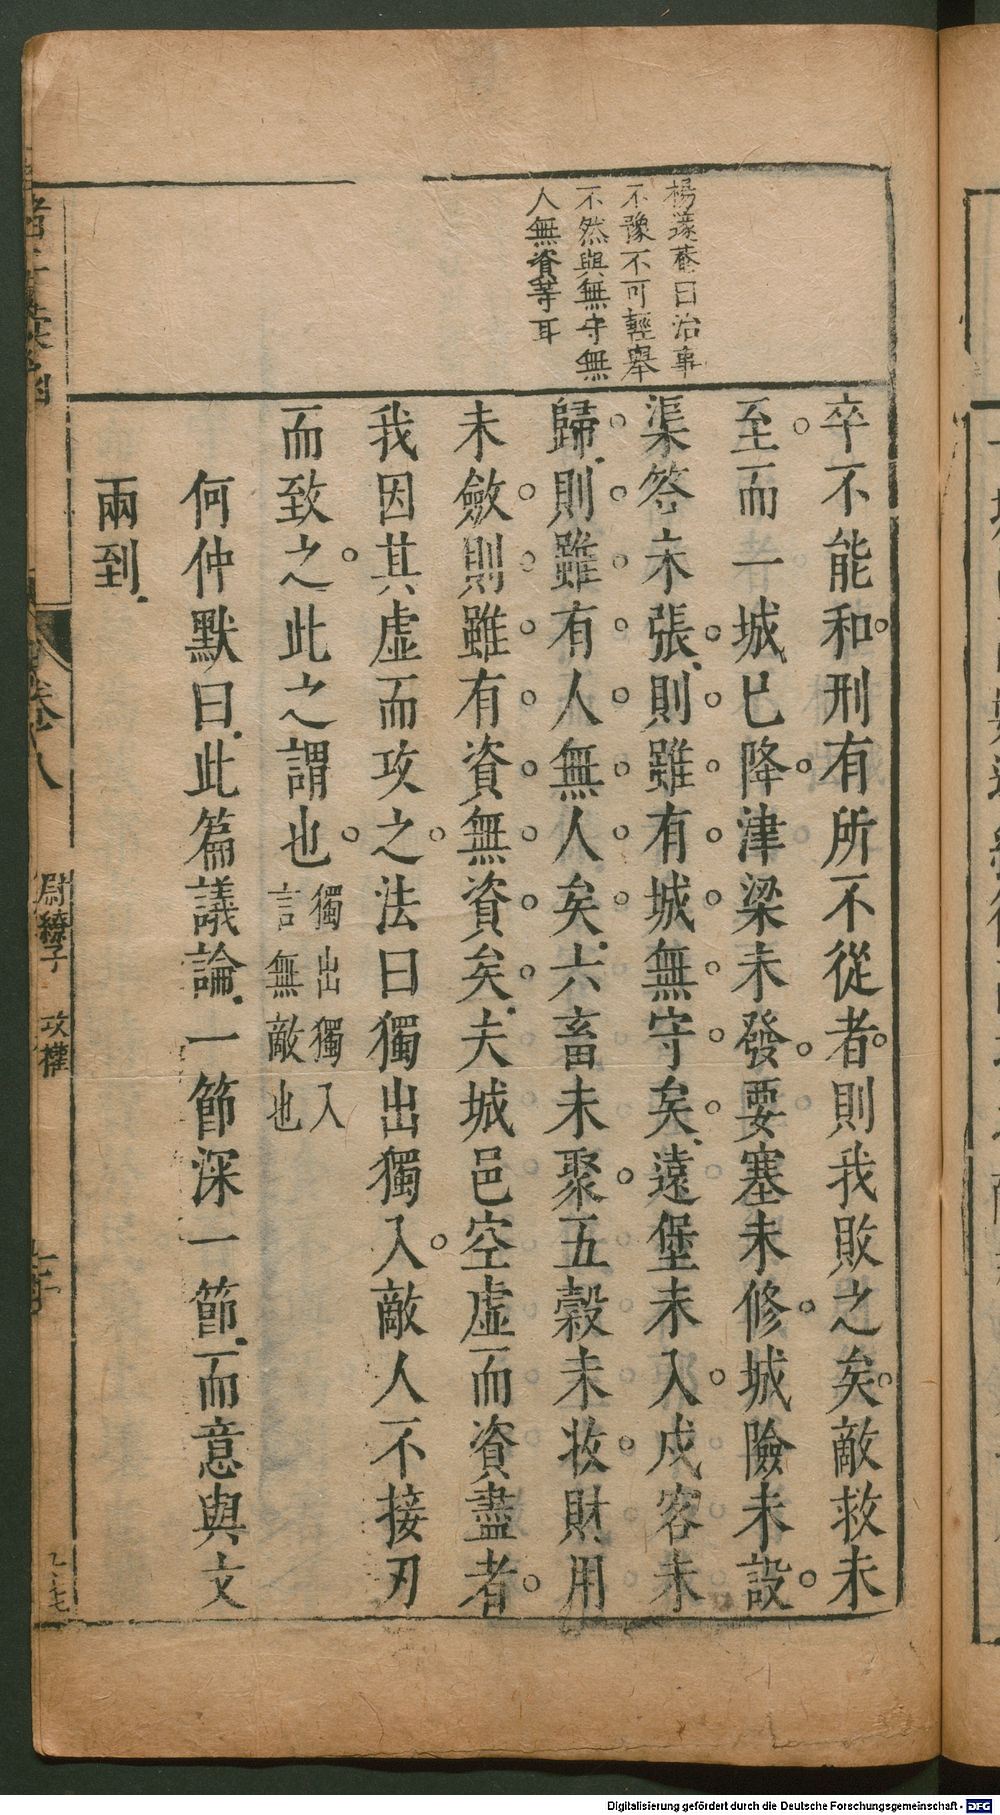 楊邃菴曰治事
不豫不可輕舉
不然與無守無
人無資等耳
卒不能和刑有所不從者則我敗之矣敵救未
至而一城已降津梁未發要塞未修城險未設
渠答未張則雖有城無守矣遠堡未入戍客未
歸則雖有人無人矣六畜未聚五穀未收財用
未斂則雖有資無資矣夫城邑空虛而資盡者
我因其虛而攻之法曰獨出獨入敵人不接刃
而致之此之謂也
獨出獨入
言無敵也
何仲默曰此篇議論一節深一節而意與文
兩到
卷八
尉繚子 攻權
Digitalisierung gefördert durch die Deutsche Forschungsgemeinschaft - DFG